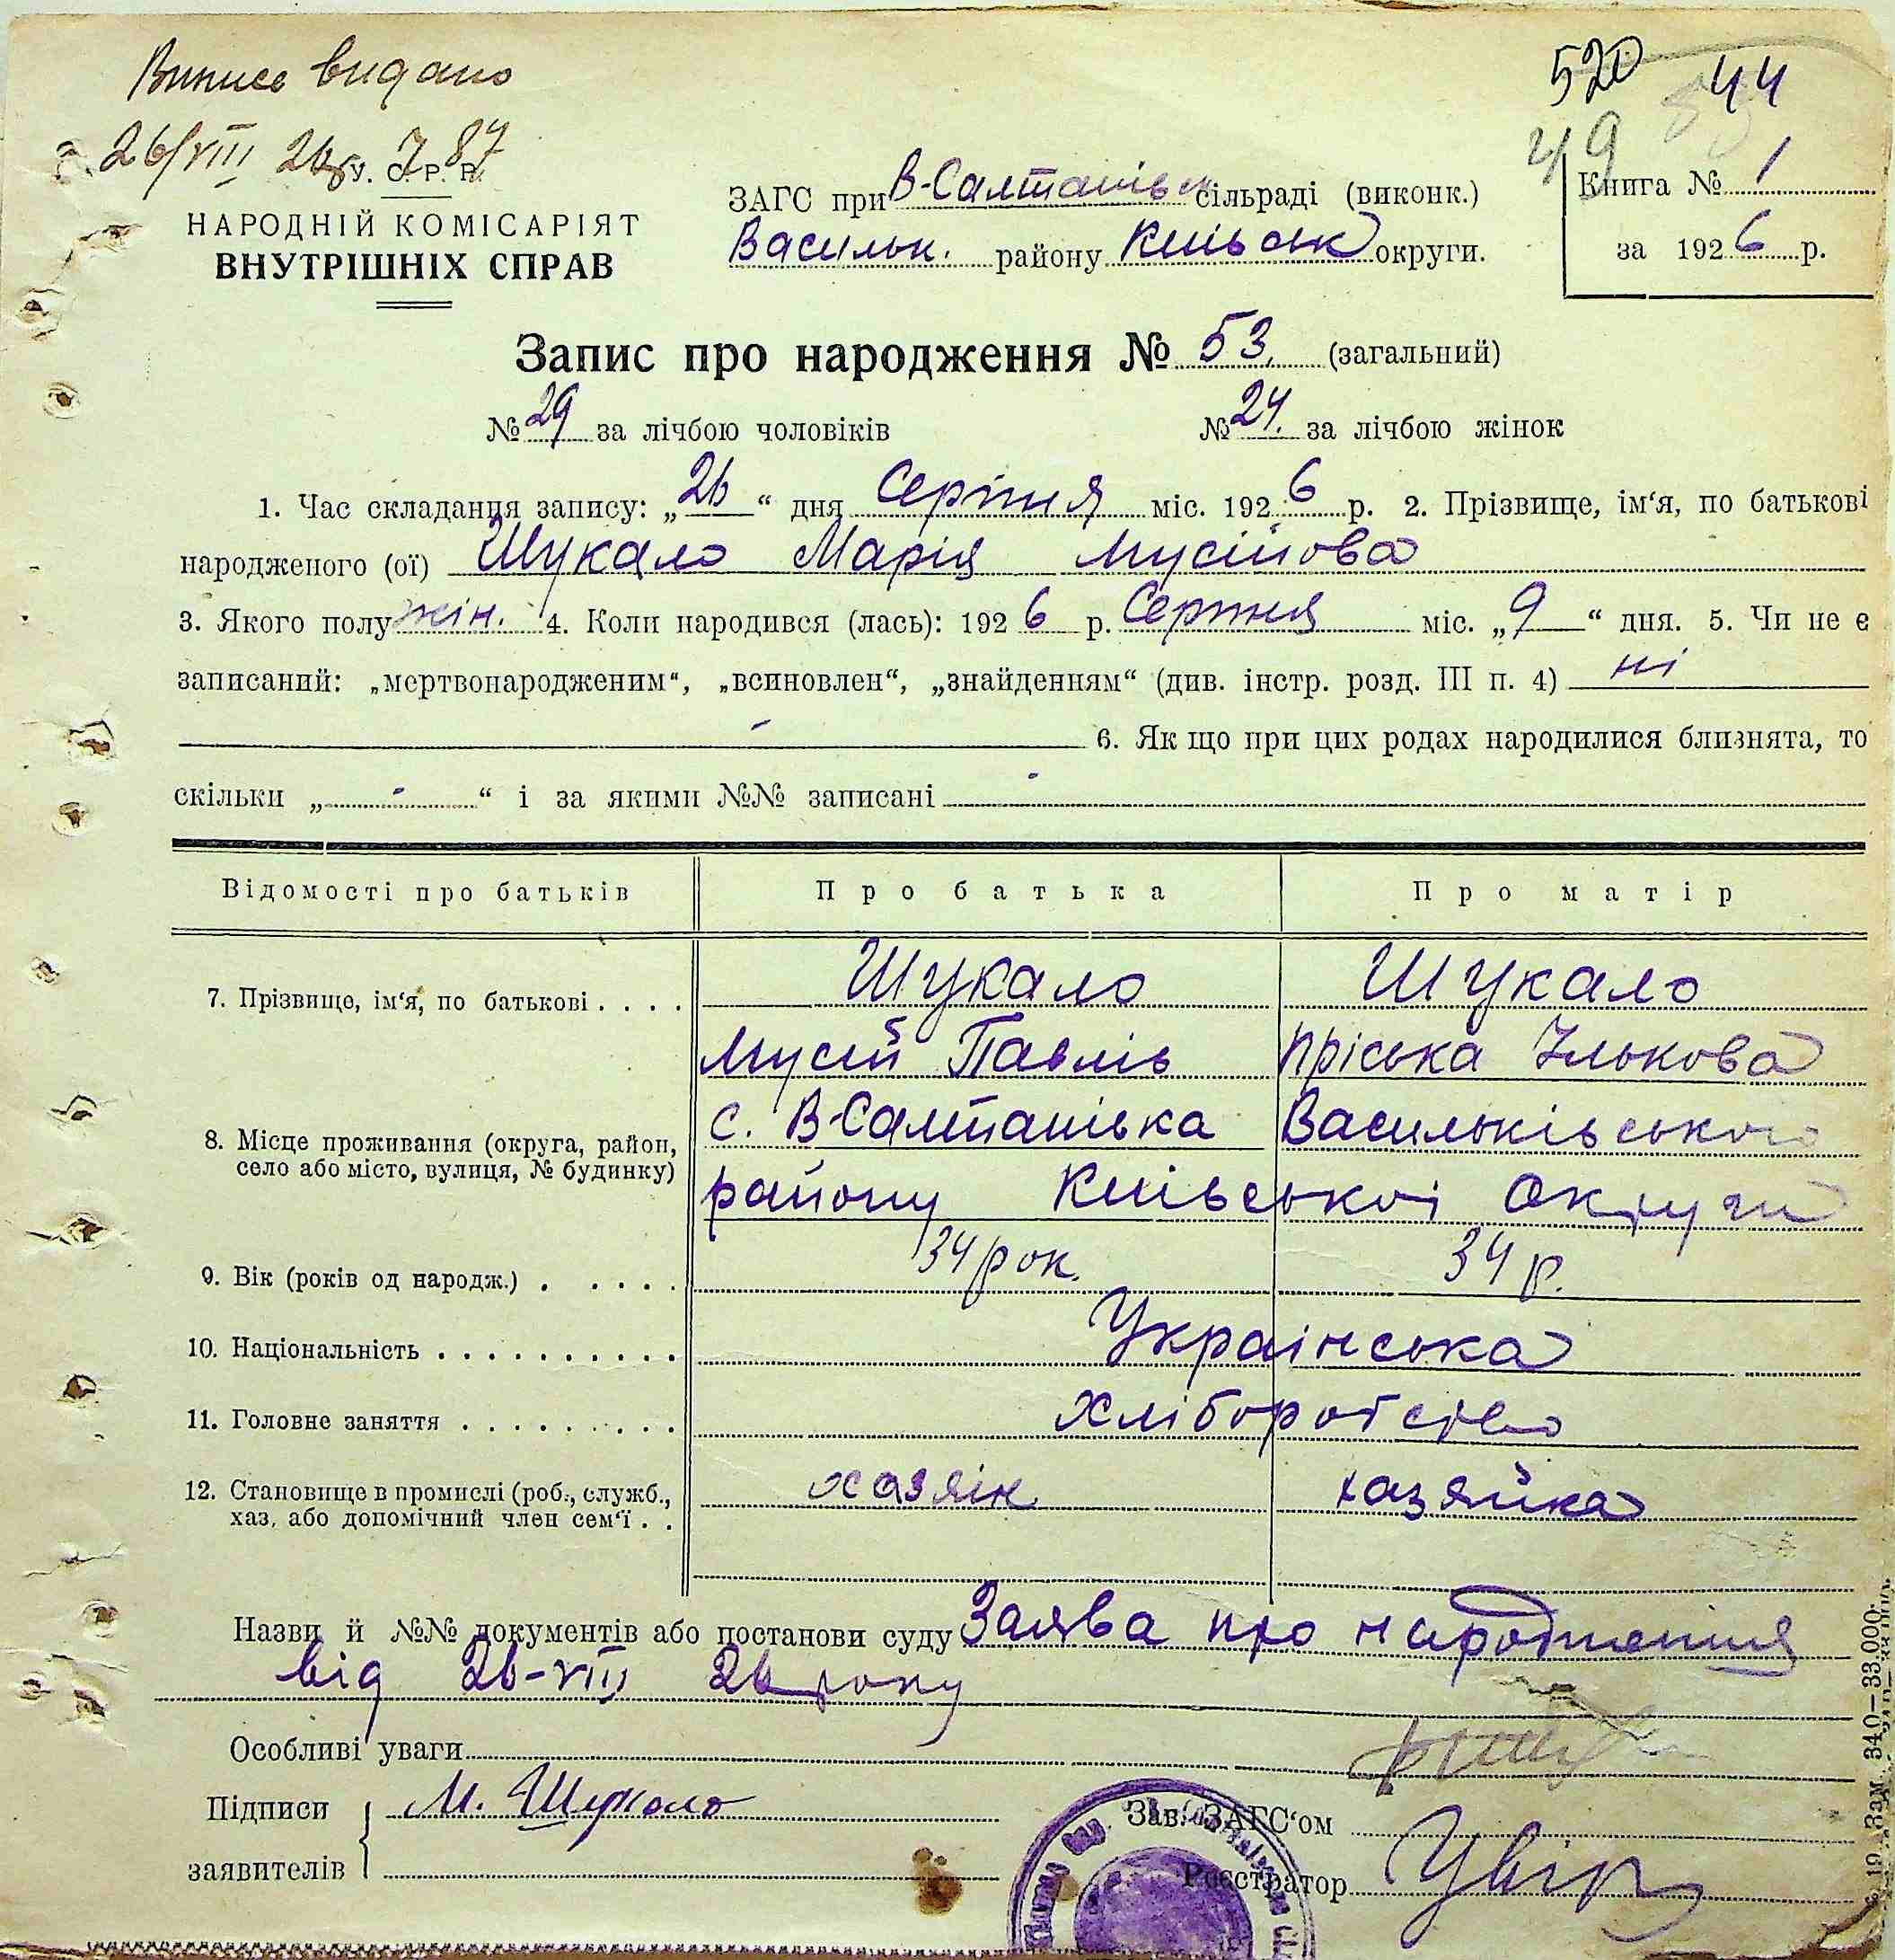 Випись видано
520 44
26/VIII 26 р. 787
49
У. С. Р. Р.
НАРОДНІЙ КОМІСАРІЯТ
ВНУТРІШНІХ СПРАВ
ЗАГС при В-Салтанівск сільраді (виконк.)
Васильк. району Київськ округи.
Книга № 1
за 1926 р.
Запис про народження № 53. (загальний)
№ 29 за лічбою чоловіків № 24. за лічбою жінок
1. Час складання запису: „26“ дня Серпня міс. 1926 р. 2. Прізвище, ім‘я, по батькові
народженого (ої) Шукало Марія Мусійова
3. Якого полу жін. 4. Коли народився (лась): 1926 р. Серпня міс. „9“ дня. 5. Чи не є
записаний: „мертвонародженим“, „всиновлен“, „знайденням“ (див. інстр. розд. III п. 4) ні
- 6. Як що при цих родах народилися близнята, то
скільки „ - “ і за якими №№ записані -
Відомості про батьків Про батька Про матір
7. Прізвище, ім‘я, по батькові . . . . Шукало Шукало
Мусій Павлів Пріська Ількова
8. Місце проживання (округа, район, с. В-Салтанівка Васильківського
село або місто, вулиця, № будинку) району Київської Округи
9. Вік (років од народж.) . . . . . 34 рок. 34 р.
10. Національність . . . . . . . . . . Українська
11. Головне заняття . . . . . . . . . Хліборобство
12. Становище в промислі (роб., служб., хазяїн хазяйка
хаз. або допомічний член сем‘ї . .
Назви й №№ документів або постанови суду Заява про народження
від 26-VIII 26 року
Особливі уваги
Підписи М. Шукало Зав. ЗАГС‘ом
заявителів Реєстратор
19 Зам 340—33.000.